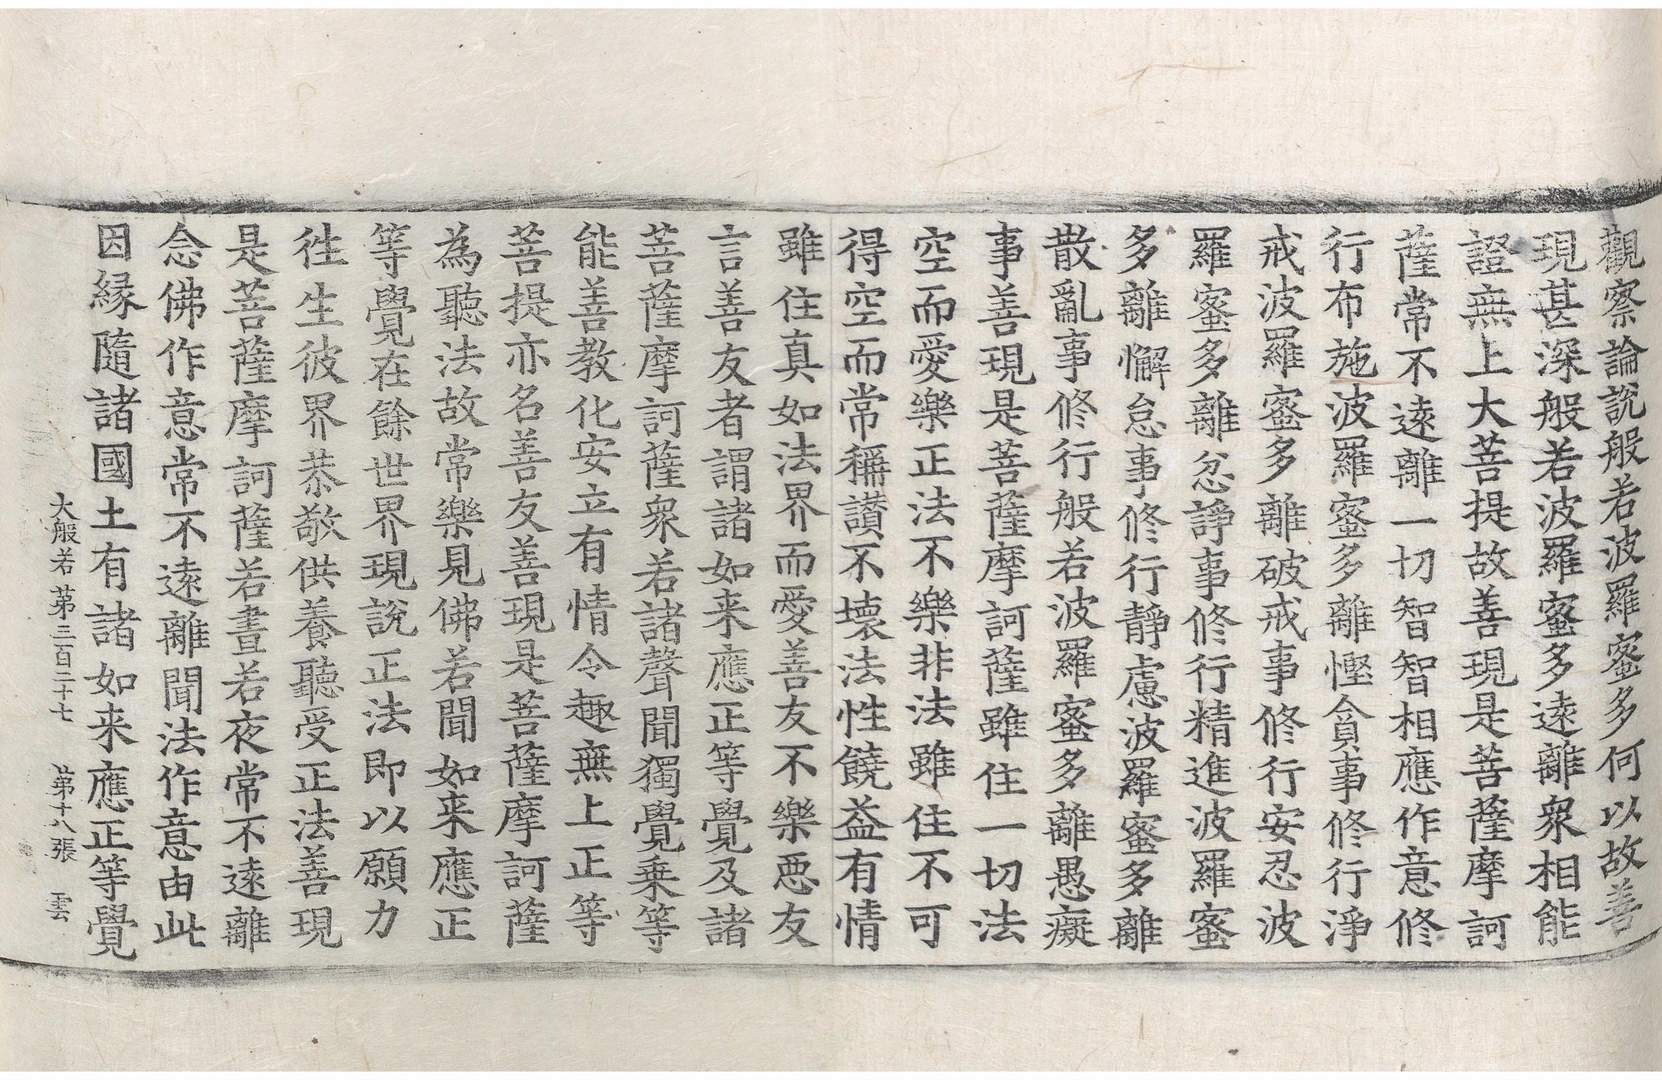 觀察論說般若波羅蜜多何以故善
現甚深般若波羅蜜多遠離衆相能
證無上大菩提故善現是菩薩摩訶
薩常不遠離一切智智相應作意修
行布施波羅蜜多離慳貪事修行淨
戒波羅蜜多離破戒事修行安忍波
羅蜜多離忿諍事修行精進波羅蜜
多離懈怠事修行靜慮波羅蜜多離
散亂事修行般若波羅蜜多離愚癡
事善現是菩薩摩訶薩雖住一切法
空而愛樂正法不樂非法雖住不可
得空而常稱讃不壞法性饒益有情
雖住真如法界而愛善友不樂惡友
言善友者謂諸如来應正等覺及諸
菩薩摩訶薩衆若諸聲聞獨覺乗等
能善教化安立有情令趣無上正等
菩提亦名善友善現是菩薩摩訶薩
為聽法故常樂見佛若聞如来應正
等覺在餘世界現說正法即以願力
徃生彼界恭敬供養聽受正法善現
是菩薩摩訶薩若晝若夜常不遠離
念佛作意常不遠離聞法作意由此
因縁隨諸國土有諸如来應正等覺
大般若第三百二十七 第十八張 雲